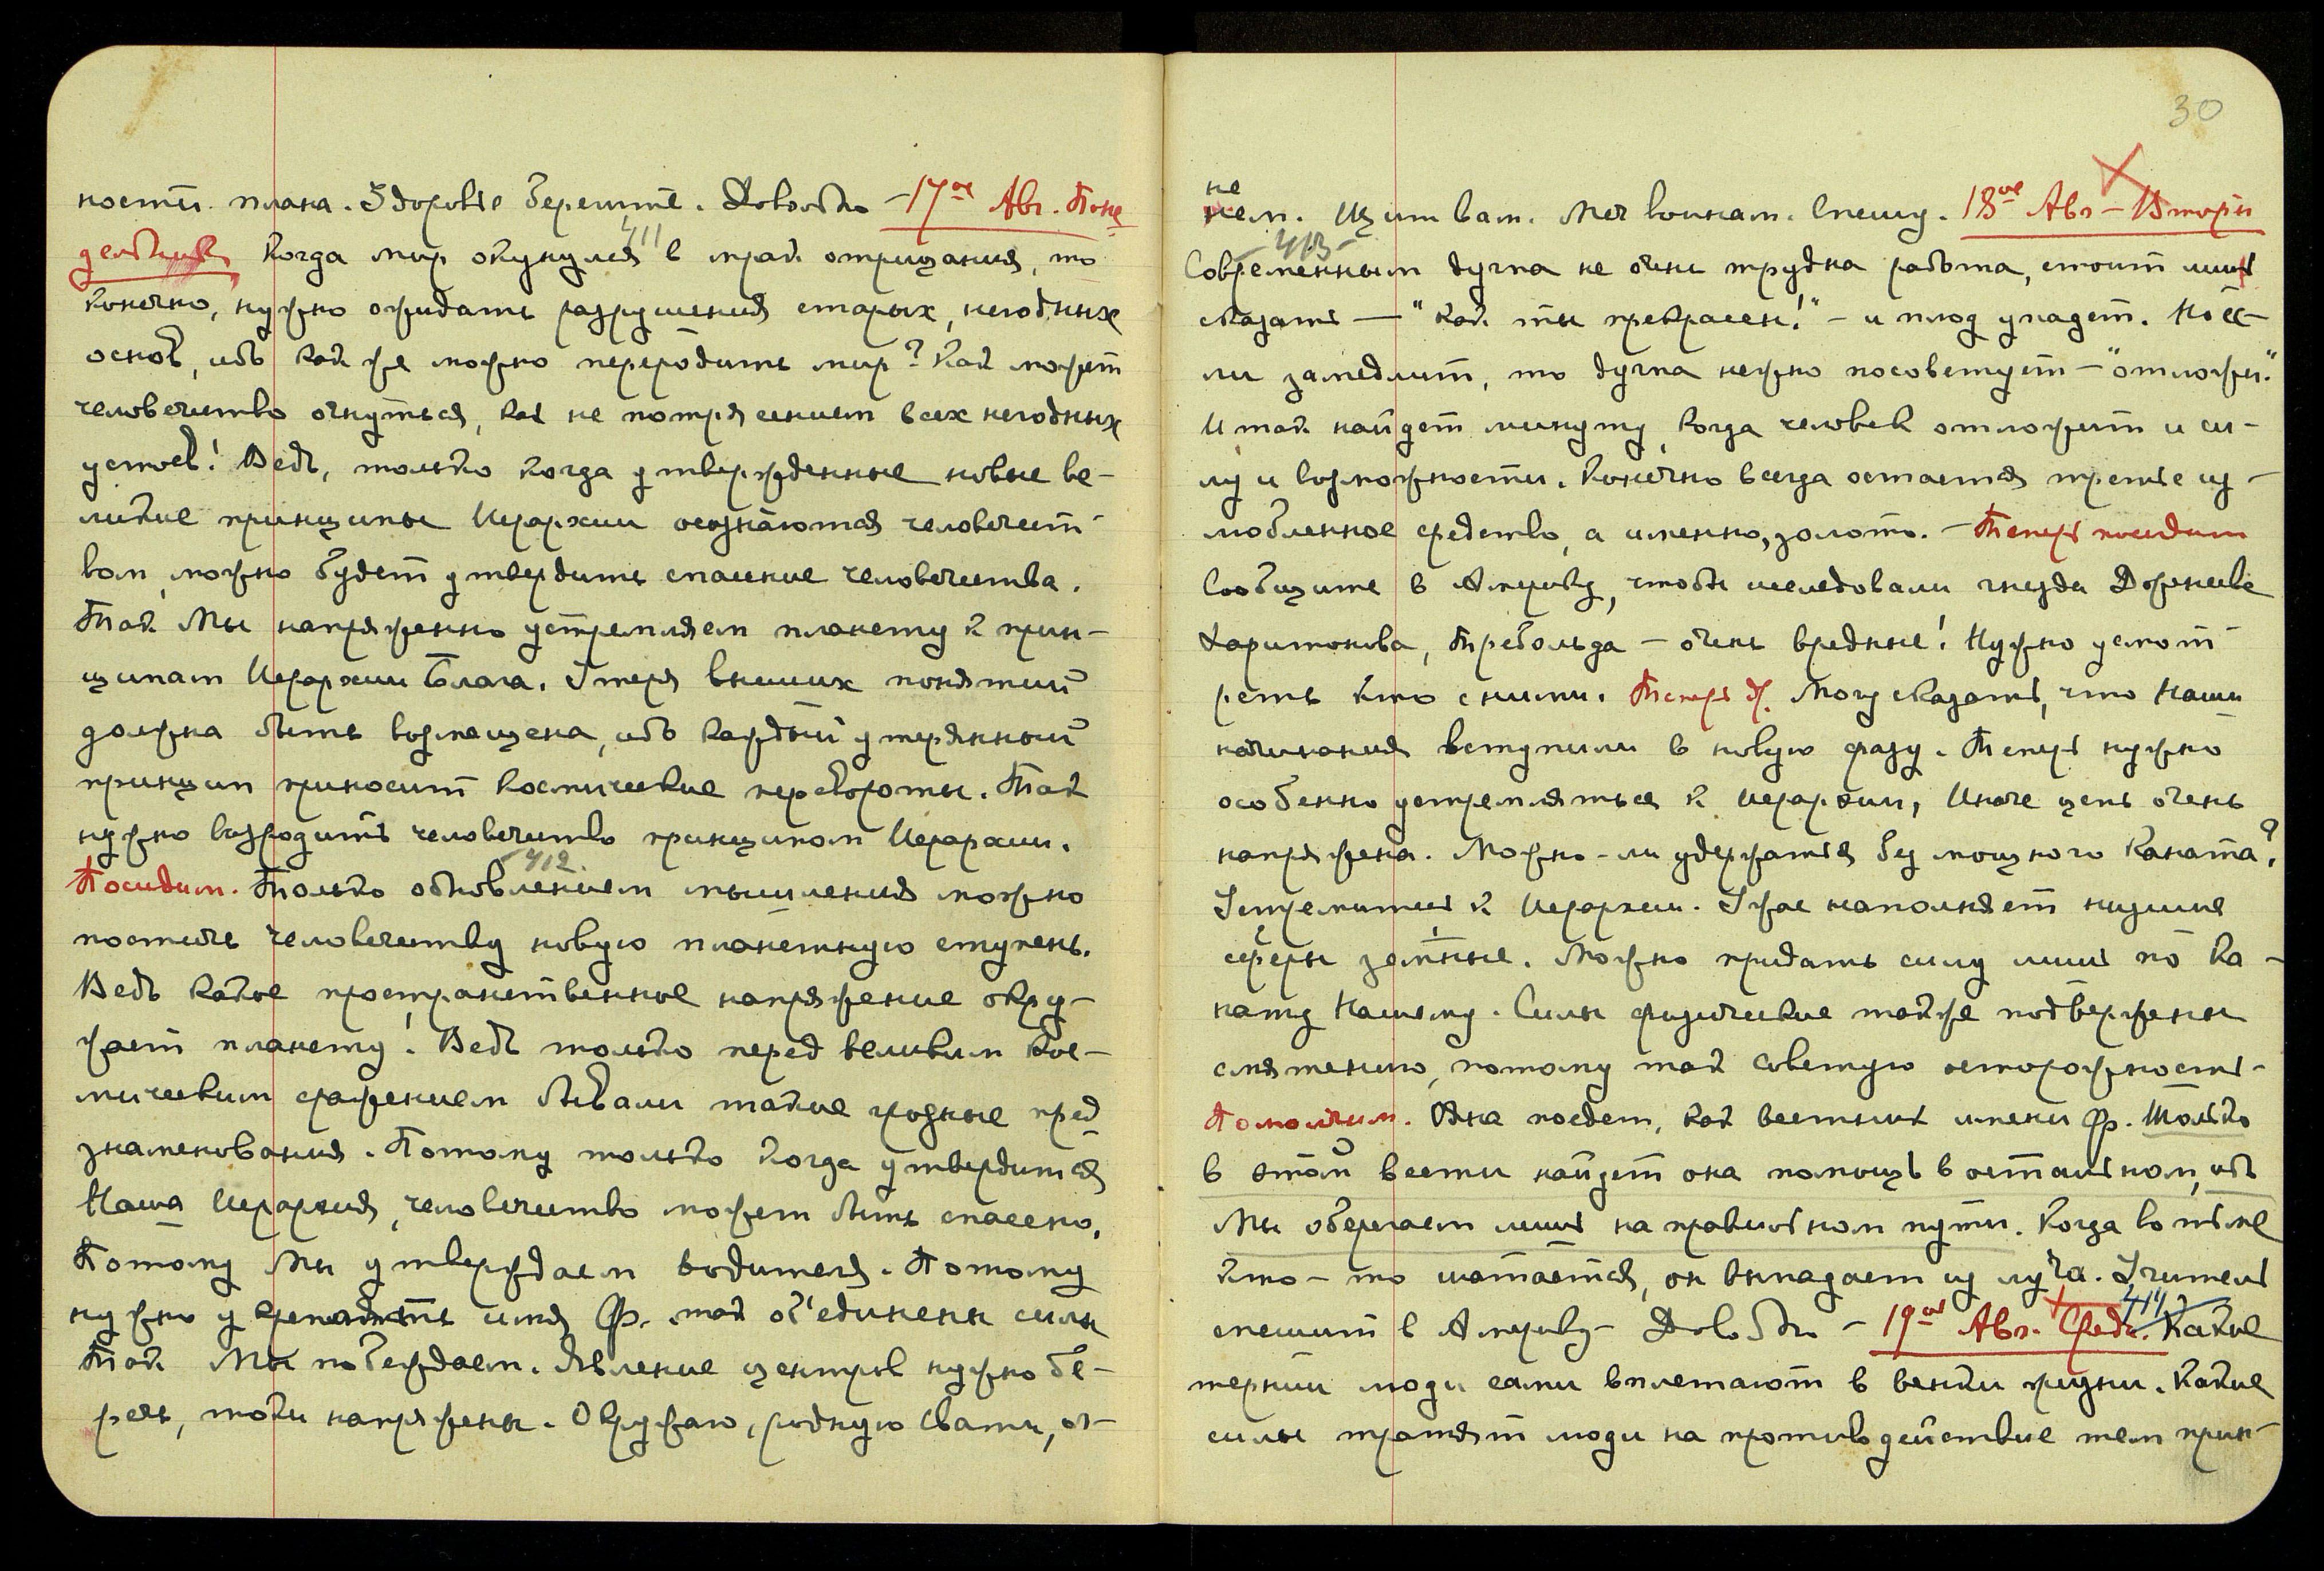 ности плана. Здоровье берегите. Довольно – 17ое Авг. Поне
дельник 411 Когда мир окунулся в мрак отрицания, то
конечно, нужно ожидать разрушения старых, негодных
основ, ибо как же можно переродить мир? Как может
человечество очнуться, как не потрясением всех негодных
устоев! Ведь, только когда утвержденные новые ве-
ликие принципы Иерархии осознаются человечест-
вом, можно будет утвердить спасение человечества.
Так Мы напряженно устремляем планету к прин-
ципам Иерархии Блага. Утеря высших понятий
должна быть возмещена, ибо каждый утерянный
принцип приносит космические перевороты. Так
нужно возродить человечество принципом Иерархии.
Посидим. 412. Только обновлением мышления можно
постичь человечеству новую планетную ступень.
Ведь какое пространственное напряжение окру-
жает планету! Ведь только перед великим кос-
мическим сражением бывали такие грозные пред
знаменования. Потому только когда утвердится
Наша Иерархия, человечество может быть спасено.
Потому Мы утверждаем водителя. Потому
нужно имя Ф. так об'единены силы
Так Мы побеждаем. Явление центров нужно бе-
речь, токи напряжены. Окружаю, родную Свати, ог-
30
не
нем. Щит вам. Меч воинам. Спешу. 18ое Авг – Вторн
413 Современным духа не очень трудна работа, стоит лишь
сказать — "Как ты прекрасен!" – и плод упадет. Но ес-
ли замедлит, то духа нежно посоветует – "отложи".
И так найдет минуту, когда человек отложит и си-
лу и возможности. Конечно всегда остается третье из-
любленное средство, а именно, золото. – Теперь посидим
Сообщите в Америку, чтобы исследовали гнезда
Харитонова, – очень вредные! Нужно усмот-
реть кто с ними. Теперь Ж. Могу сказать, что Наши
начинания вступили в новую фазу. Теперь нужно
особенно устремляться к Иерархии, Иначе цепь очень
напряжена. Можно-ли удержаться без мощного каната?
Устремитесь к Иерархии. Ужас наполняет низшие
сферы земные. Можно придать силу лишь по ка-
нату Нашему. Силы физические также подвержены
смятению, потому так советую осторожность.
Помолчим. Одна поедет, как вестник имени Ф. Только
в этой вести найдет она помощь в остальном, ибо
Мы оберегаем лишь на правильном пути. Когда во тьме
кто-то шатается, он выпадает из луча. Учитель
спешит в Америку – Довольно – 19ое Авг. Среда. 414 Какие
тернии люди сами вплетают в венки жизни. Какие
силы тратят люди на противодействие тем прин-